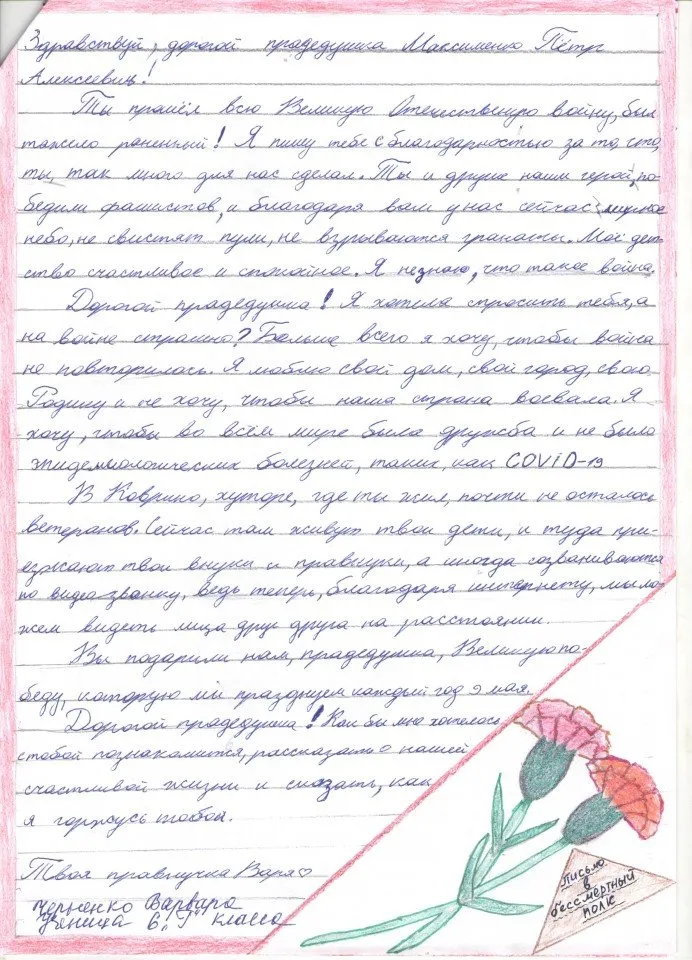 Здравствуй, дорогой прадедушка Максименко Пётр
Алексеевич!
Ты прошёл всю Великую Отечественную войну, был
тяжело раненный! Я пишу тебе с благодарностью за то, что,
ты, так много для нас сделал. Ты и другие наши герои, по-
бедили фашистов, и благодаря вам у нас сейчас мирное
небо, не свистят пули, не взрываются гранаты. Моё дет
ство счастливое и спокойное. Я не знаю, что такое война.
Дорогой прадедушка! Я хотела спросить тебя, а
на войне страшно? Больше всего я хочу, чтобы война
не повторилась. Я люблю свой дом, свой город, свою
Родину и не хочу, чтобы наша страна воевала. Я
хочу, чтобы во всём мире была дружба и не было
эпидемиологических болезней, таких, как COViD-19
В Коврино, хуторе, где ты жил, почти не осталось
ветеранов. Сейчас там живут твои дети, и туда при-
езжают твои внуки и правнуки, а иногда созваниваются
по видео-звонку, ведь теперь, благодаря интернету, мы мо-
жем видеть лица друг друга на расстоянии.
Вы подарили нам, прадедушка, Великую по-
беду, которую мы празднуем каждый год 9 мая.
Дорогой прадедушка! Как бы мне хотелось
с тобой познакомится, рассказать о нашей
счастливой жизни и сказать, как
я горжусь тобой.
Твоя правнучка Варя♡
Черненко Варвара
ученица 6 "Г" класса
письмо
в
бессмертный
полк